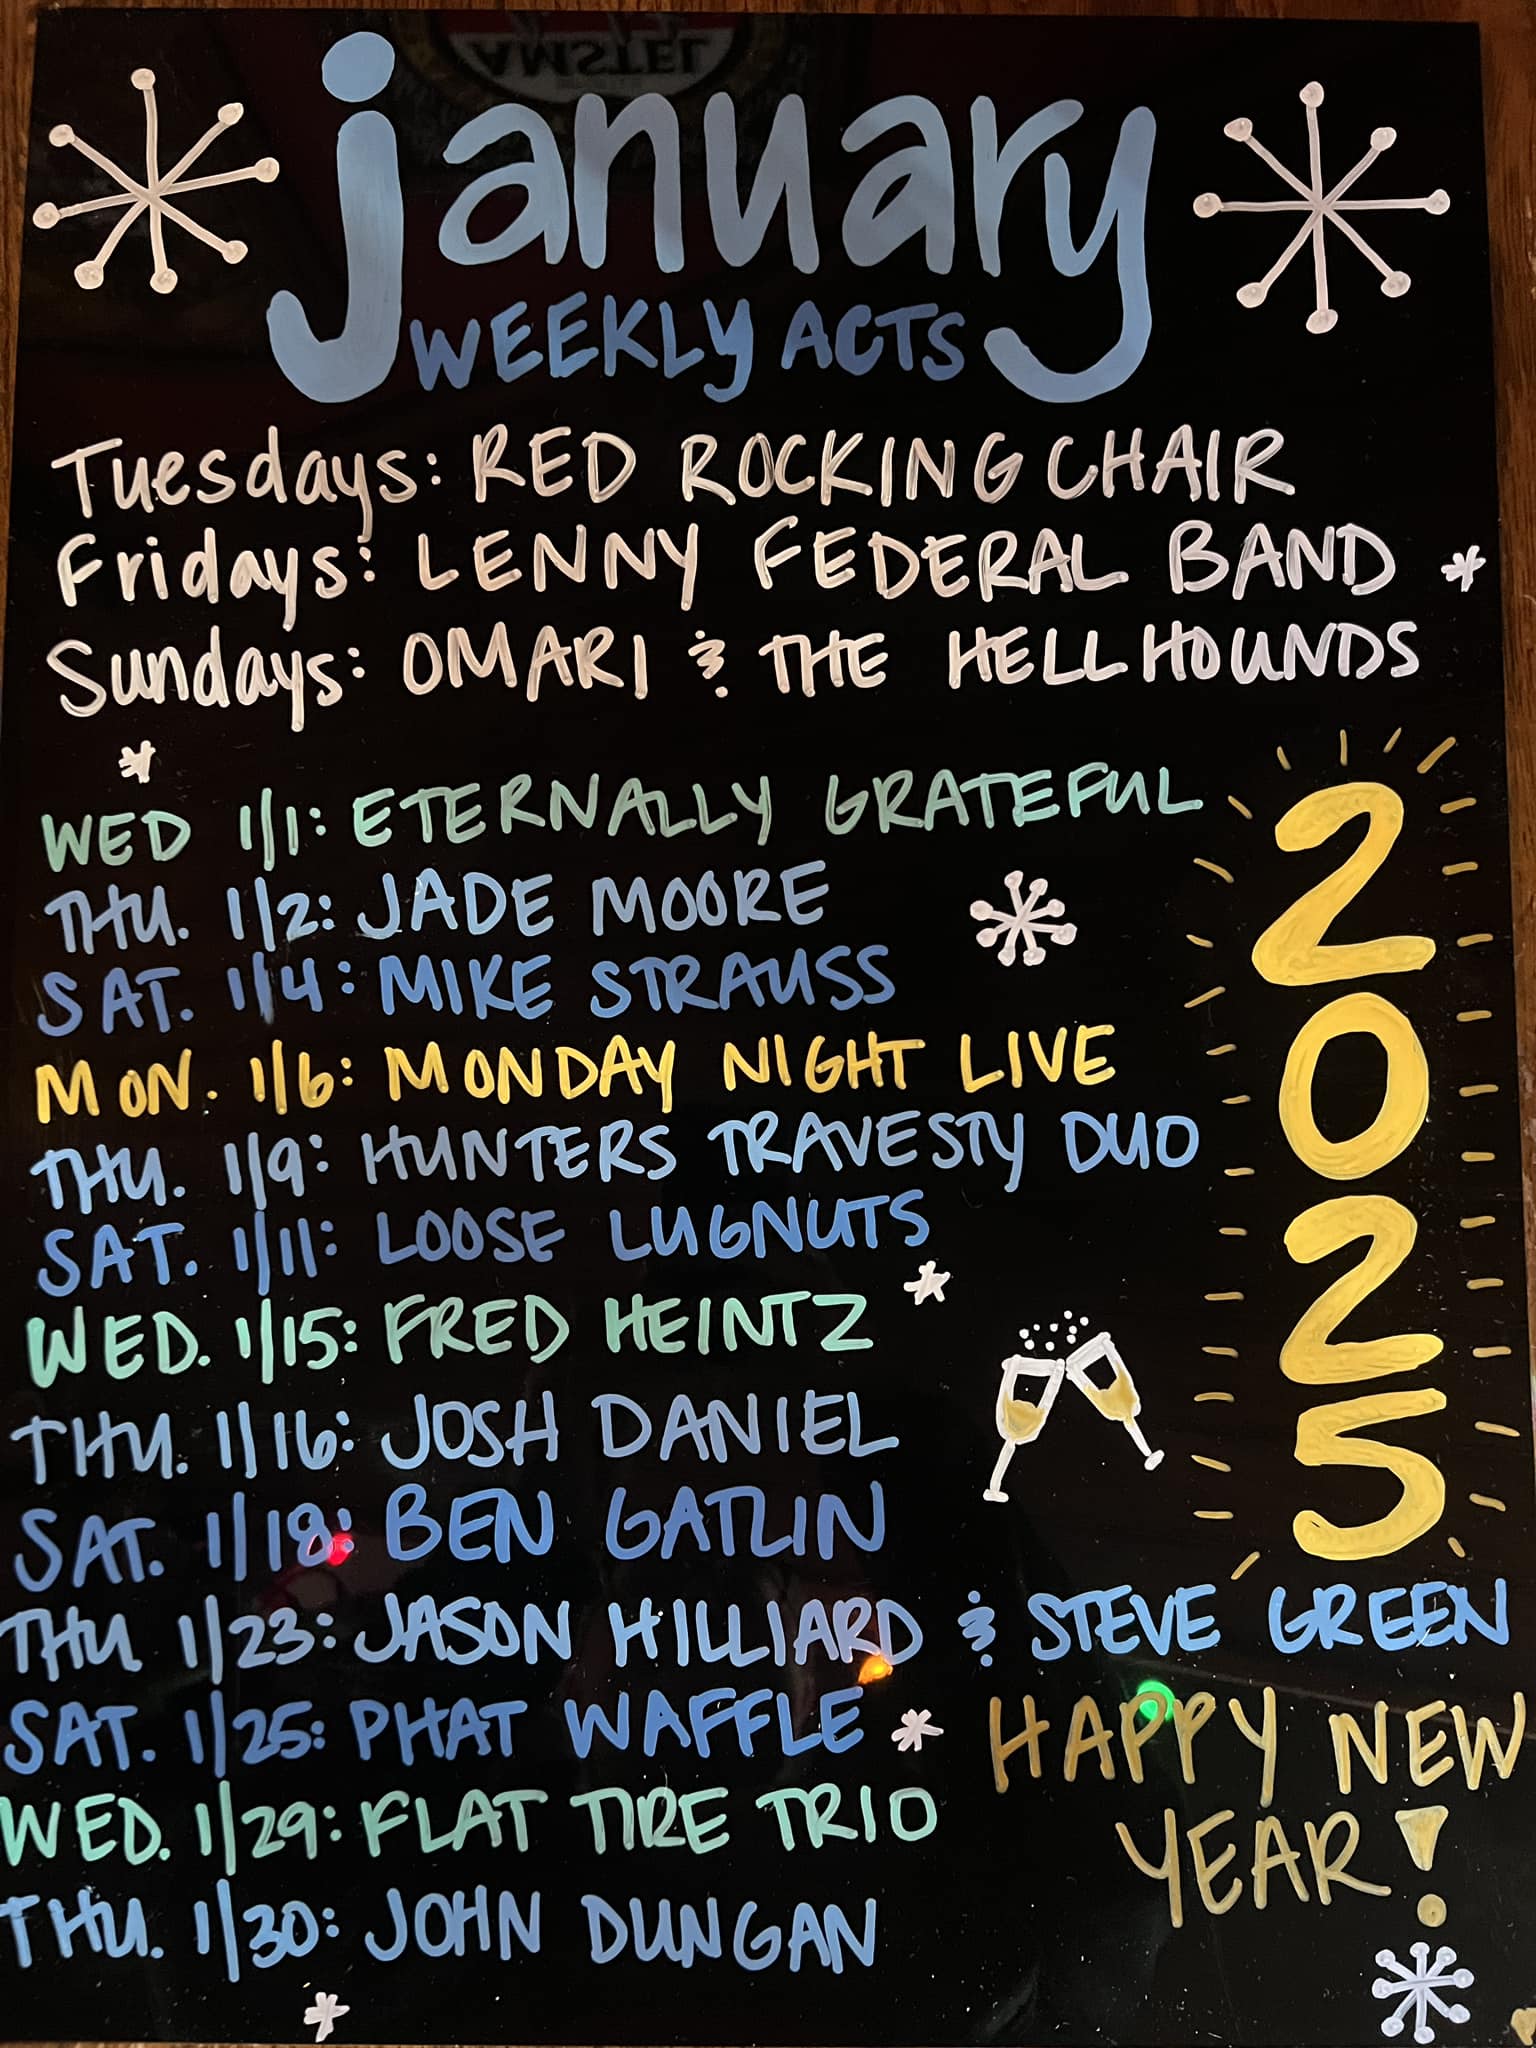 AMSTEL
january
WEEKLY ACTS
Tuesdays: RED ROCKING CHAIR
Fridays: LENNY FEDERAL BAND
Sundays: OMARI & THE HELLHOUNDS
WED 1/1: ETERNALLY GRATEFUL
THU. 1/2: JADE MOORE
SAT. 1/4: MIKE STRAUSS
MON. 1/6: MONDAY NIGHT LIVE
THU. 1/9: HUNTERS TRAVESTY DUO
SAT. 1/11: LOOSE LUGNUTS
WED. 1/15: FRED HEINTZ
THU. 1/16: JOSH DANIEL
SAT. 1/18: BEN GATLIN
THU 1/23: JASON HILLIARD & STEVE GREEN
SAT. 1/25: PHAT WAFFLE
WED. 1/29: FLAT TIRE TRIO
THU. 1/30: JOHN DUNGAN
2025
HAPPY NEW
YEAR!